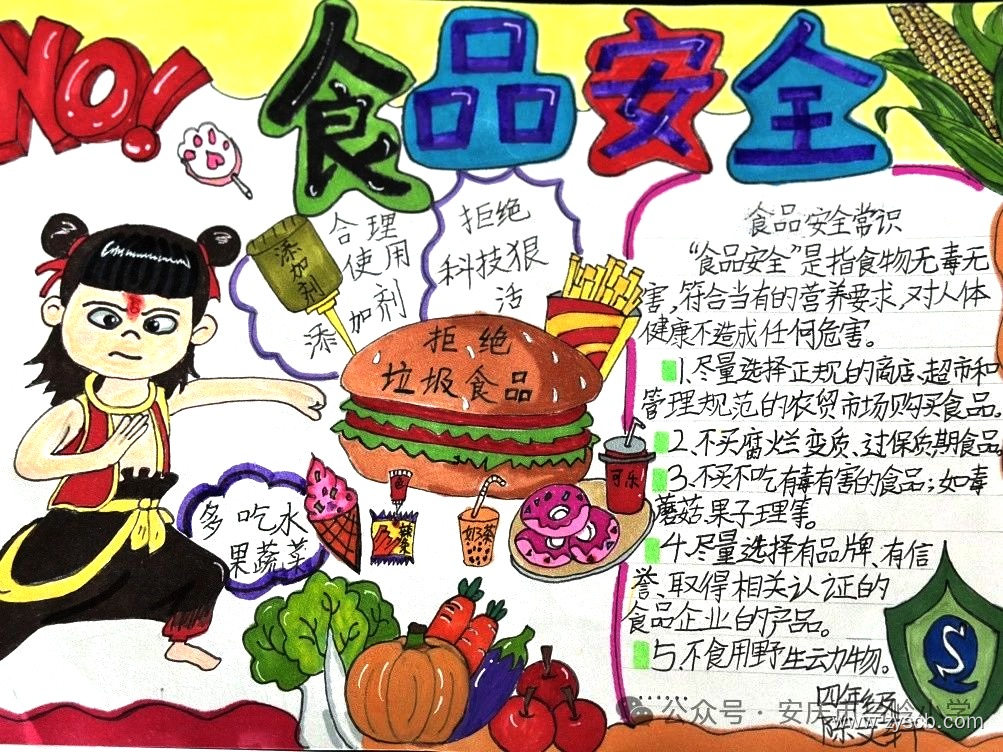 NO!
食品安全
添加剂
合理
使用
添加剂
拒绝
科技狠
活
拒绝
垃圾食品
多吃水
果蔬菜
可乐
奶茶
食品安全常识
“食品安全”是指食物无毒无
害,符合当有的营养要求,对人体
健康不造成任何危害。
1、尽量选择正规的商店、超市和
管理规范的农贸市场购买食品。
2、不买腐烂变质、过保质期食品
3、不买不吃有毒有害的食品;如毒
蘑菇、果子理等。
4、尽量选择有品牌、有信
誉、取得相关认证的
食品企业的产品。
5、不食用野生动物。
......
S
四年级
公众号·安庆
小学
www.zyscb.com